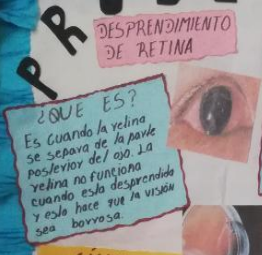 DESPRENDIMIENTO
DE RETINA
¿QUE ES?
Es cuando la retina
se separa de la parte
posterior del ojo. La
retina no funciona
cuando esta desprendida
y esto hace que la visión
sea borrosa.